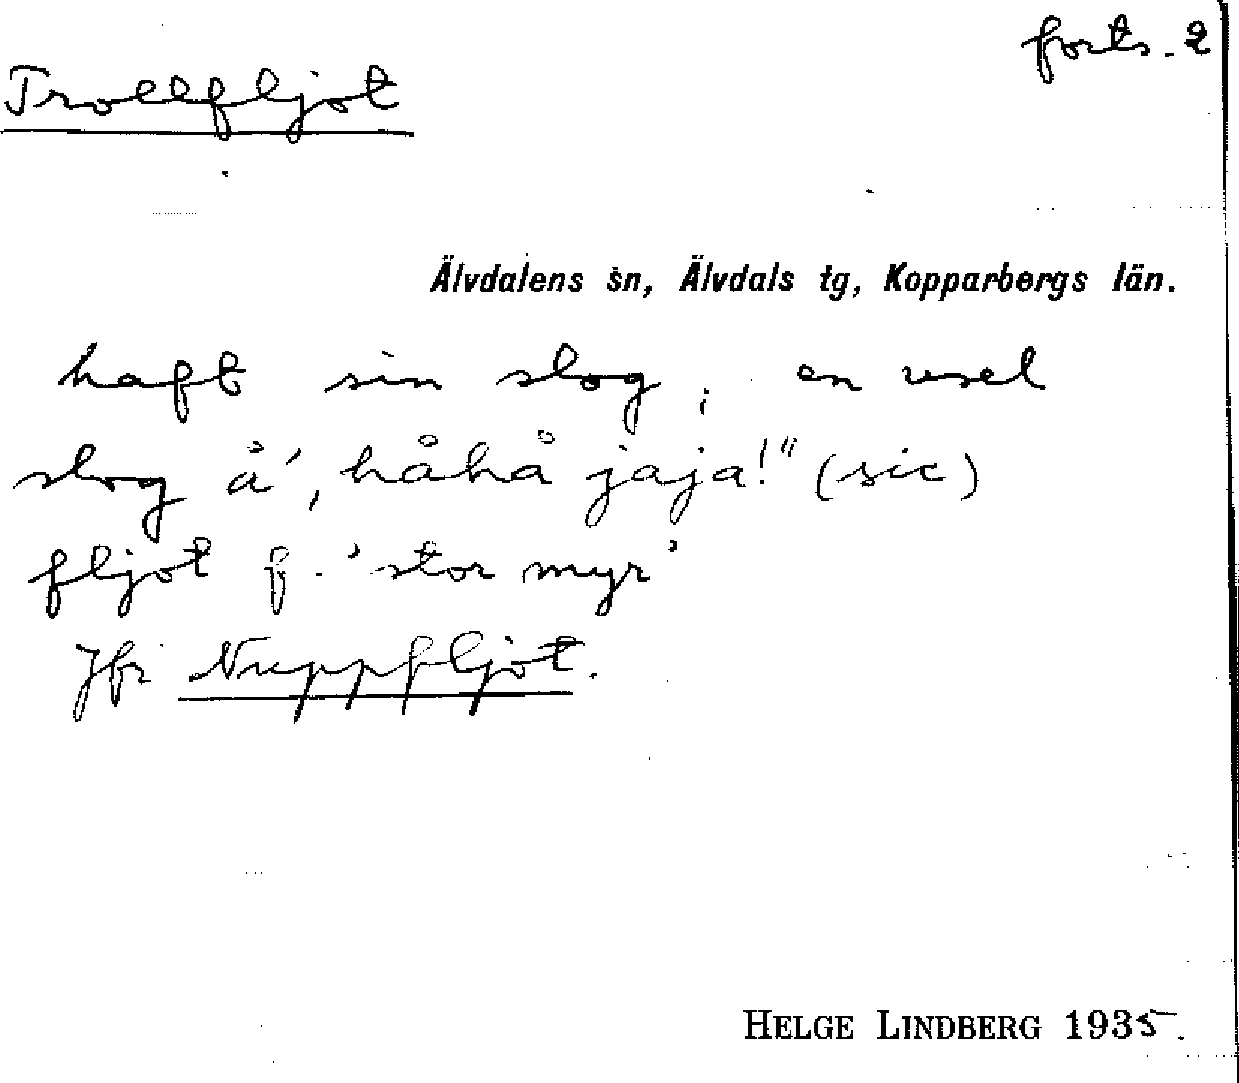 forts. 2
Trollfljot
Älvdalens sn, Älvdals tg, Kopparbergs län.
haft sin slog, en usel
slog å', håhå jaja!" (sic)
fljot f. 'stor myr'
Jfr Nuppfljot.
HELGE LINDBERG 1935.